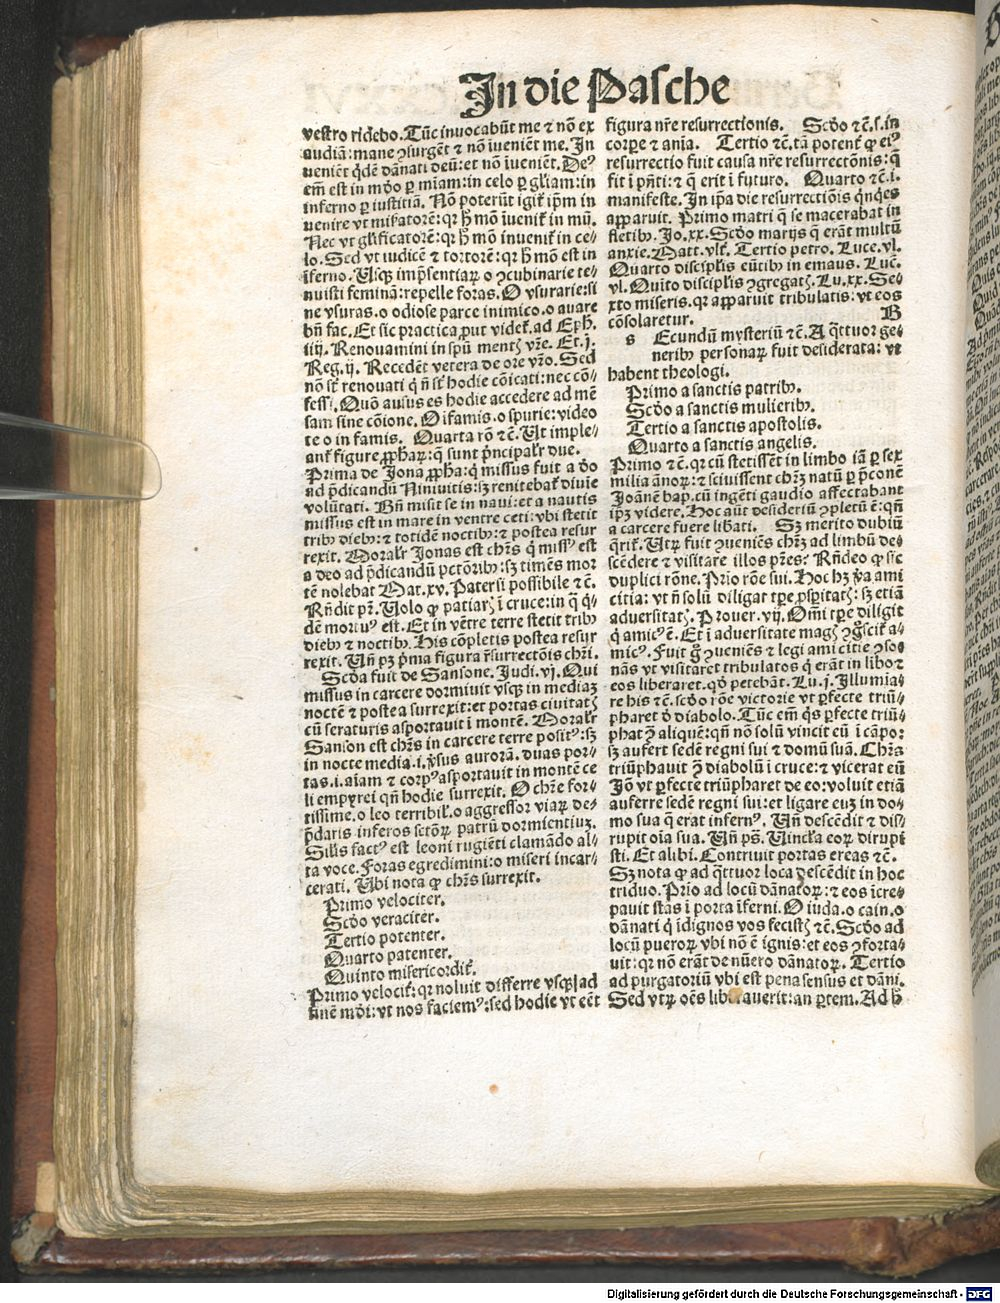 In die Pasche
vestro ridebo. Tũc inuocabũt me ⁊ nõ ex
audiã: mane ꝯsurgẽt ⁊ nõ iuẽniẽt me. In
ueniẽt q̃dẽ dãnati deũ: et nõ iueniẽt. Deꝰ
em̃ est in mõo ꝑ miam: in celo ꝑ gl̃iam: in
inferno ꝑ iustitiã. Nõ poterũt igit̃ ip̃m in
uenire vt miẜatorẽ: qꝛ h̃ mõ iuenit̃ in mũ.
Nec vt gl̃ificatorẽ: qꝛ h̃ mõ inuenit̃ in ce/
lo. Sed vt iudicẽ ⁊ tortorẽ: qꝛ h̃ mõ est in
ĩferno. Usq̃ imp̃sentiaꝝ o ꝯcubinarie te/
nuisti feminã: repelle foras. O vsurarie: si
ne vsuras. o odiose parce inimico. o auare
bñ fac. Et sic practica ꝓut videt̃. ad Eph.
iiij. Renouamini in spũ mentꝭ vr̃e. Et .j.
Reg. ij. Recedẽt vetera de ore vr̃o. Sed
nõ sũt renouati q̃ ñ sũt hodie cõicati: nec cõ/
fessi. Quõ ausus es hodie accedere ad mẽ
sam sine cõione. O ifamis. o spurie: video
te o in famis. Quarta rõ ⁊c̃. Ut imple/
ant̃ figure ꝓphaꝝ: q̃ sunt p̃ncipalr̃ due.
Prima de Jona ꝓpha: q̃ missus fuit a deo
ad p̃dicandũ Niniuitis: sꝫ renitebat̃ diuie
volũtati. Uñ misit se in naui: et a nautis
missus est in mare in ventre ceti: vbi stetit
tribꝰ diebꝰ: ⁊ totidẽ noctibꝰ: ⁊ postea resur
rexit. Moralr̃ Jonas est chr̃s q̃ missꝰ est
a deo ad p̃dicandũ pctõribꝰ: sꝫ timẽs mor
tẽ nolebat Mat. xv. Pater si possibile ⁊c̃.
Rñdit pr̃. Uolo ꝙ patiarꝭ ĩ cruce: in q̃ q̃/
dẽ mortuꝰ est. Et in vẽtre terre stetit tribꝰ
diebꝰ ⁊ noctibꝰ. His cõpletis postea resur
rexit. Uñ pꝫ p̃ma figura r̃surrectõis chr̃i.
Scõa fuit de Sansone. Judi. vj. Qui
missus in carcere dormiuit vsqꝫ in mediaꝫ
noctẽ ⁊ postea surrexit: et portas ciuitatꝭ
cũ seraturis asportauit ĩ montẽ. Moralr̃
Sanson est chr̃s in carcere terre positꝰ: sꝫ
in nocte media .i. ꝟsus aurorã. duas por/
tas .i. aĩam ⁊ corpꝰ asportauit in montẽ ce
li empyrei qñ hodie surrexit. O chr̃e for/
tissime. o leo terribil̃. o aggressor viaꝝ de/
p̃daris inferos sctõꝝ patrũ dormientiuꝫ.
Sil̃is factꝰ est leoni rugiẽti clamãdo al/
ta voce. Foras egredimini: o miseri incar/
cerati. Ubi nota ꝙ chr̃s surrexit.
Primo velociter.
Scõo veraciter.
Tertio potenter.
Quarto patenter.
Quinto misericordit̃.
Primo velocit̃: qꝛ noluit differre vsqꝫ ad
finẽ mõi: vt nos faciemꝰ: sed hodie vt eẽt
figura nr̃e resurrectionis. Scõo ⁊c̃. s. in
corꝑe ⁊ aĩa. Tertio ⁊c̃. tã potent̃ ꝙ eiꝰ
resurrectio fuit causa nr̃e resurrectõnis: q̃
fit ĩ p̃nti: ⁊ q̃ erit ĩ futuro. Quarto ⁊c̃. i.
manifeste. In ip̃a die resurrectiõis q̃nq̃es
apparuit. Primo matri q̃ se macerabat in
fletibꝰ. Jo. xx. Scõo marijs q̃ erãt multũ
anxie. Matt. vlt̃. Tertio petro. Luce. vl.
Quarto discipl̃is eũtibꝰ in emaus. Luc̃.
vl. Quito discipl̃is ꝯgregatꝭ. Lu. xx. Se/
xto miseris. qꝛ apparuit tribulatis: vt eos
cõsolaretur. B
s Ecundũ mysteriũ ⁊c̃. A q̃ttuor ge/
neribꝰ personaꝝ fuit desiderata: vt
habent theologi.
Primo a sanctis patribꝰ.
Scõo a sanctis mulieribꝰ.
Tertio a sanctis apostolis.
Quarto a sanctis angelis.
Primo ⁊c̃. qꝛ cũ stetissẽt in limbo iã ꝑ sex
milia ãnoꝝ: ⁊ sciuissent chr̃ꝫ natũ ꝑ p̃conẽ
Joãnẽ bap. cũ ingẽti gaudio affectabant
ip̃ꝫ videre. Hoc aũt desideriũ ꝯpletũ ẽ: qñ
a carcere fuere libati. Sꝫ merito dubiũ
q̃rit̃. Utꝝ fuit ꝯueniẽs chr̃ꝫ ad limbũ de/
scẽdere ⁊ visitare illos pr̃es. Rñdeo ꝙ sic
duplici rõne. Prĩo rõe sui. Hoc hꝫ ꝟa ami
citia: vt ñ solũ diligat tꝑe ꝓsꝑitatꝭ: sꝫ etiã
aduersitatꝭ. Prouer. vij. Om̃i tꝑe diligit
q̃ amicꝰ ẽ. Et ĩ aduersitate magꝭ ꝯg̃scit̃ a/
micꝰ. Fuit g̃ ꝯueniẽs ⁊ legi amicitie ꝯso/
nãs vt visitaret tribulatos q̃ erãt in libo ⁊
eos liberaret. qõ petebãt. Lu. j. Illumia/
re his ⁊c̃. scõo rõe victorie vt ꝑfecte triũ/
pharet õ diabolo. Tũc em̃ q̃s ꝑfecte triũ/
phat ꝯ̃ aliquẽ: qñ nõ solũ vincit eũ ĩ cãpo:
sꝫ aufert sedẽ regni sui ⁊ domũ suã. Chr̃s
triũphauit ꝯ̃ diabolũ ĩ cruce: ⁊ vicerat eũ
Jõ vt ꝑfecte triũpharet de eo: voluit etiã
auferre sedẽ regni sui: et ligare euꝫ in do/
mo sua q̃ erat infernꝰ. Uñ descẽdit ⁊ dis/
rupit oĩa sua. Uñ ps̃. Uincl̃a eoꝝ dirupi
sti. Et alibi. Contriuit portas ereas ⁊c̃.
Sꝫ nota ꝙ ad q̃ttuor loca descẽdit in hoc
triduo. Prĩo ad locũ dãnatoꝝ: ⁊ eos ĩcre/
pauit stãs ĩ porta ĩferni. O iuda. o cain. o
dãnati q̃ ĩdignos vos fecistꝭ ⁊c̃. Scõo ad
locũ pueroꝝ vbi nõ ẽ ignis: et eos ꝯforta/
uit: qꝛ nõ erãt de nũero dãnatoꝝ. Tertio
ad purgatoriũ vbi est pena sensus et dãni.
Sed vtꝝ oẽs liberauerit: an ꝑtem. Ad h̃
Digitalisierung gefördert durch die Deutsche Forschungsgemeinschaft - DFG